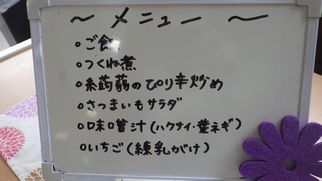 ～メニュー～
○ご飯
○つくね煮
○糸蒟蒻のぴり辛炒め
○さつまいもサラダ
○味噌汁(ハクサイ・葉ネギ)
○いちご(練乳がけ)